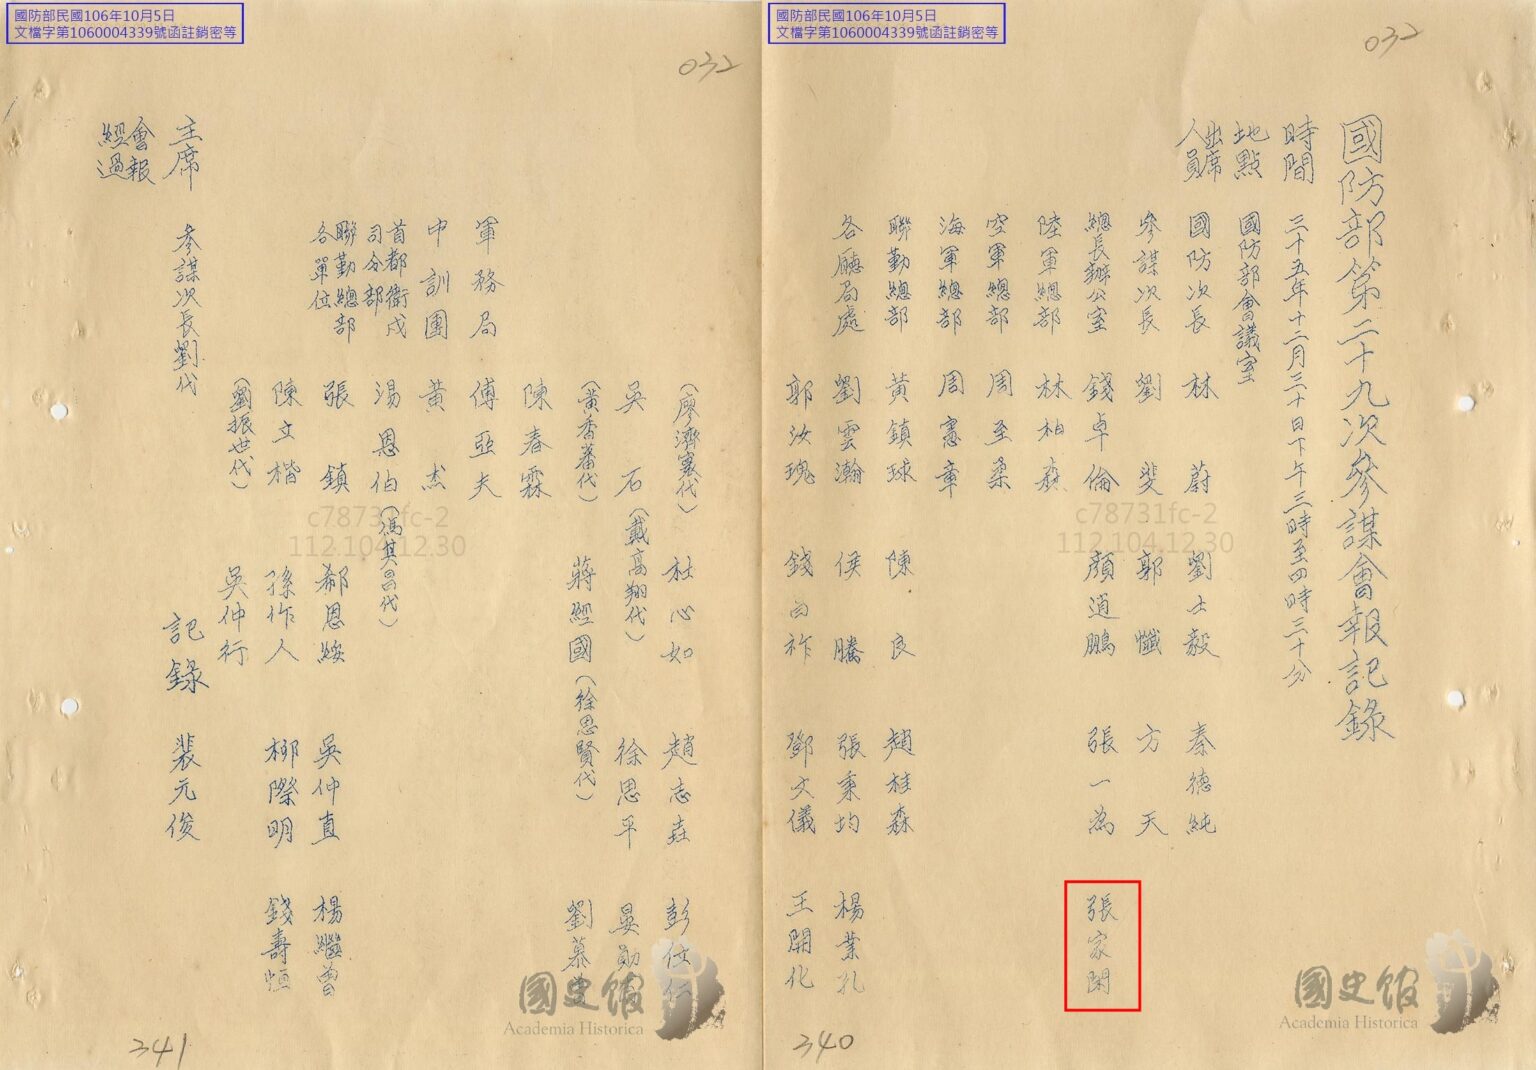 國防部民國106年10月5日
文檔字第1060004339號函註銷密等
032
國防部第二十九次參謀會報記錄
時間 三十五年十二月三十日下午三時至四時三十分
地點 國防部會議室
出席人員 國防次長 林蔚 劉士毅 秦德純
參謀次長 劉斐 郭懺 方天
總長辦公室 錢卓倫 顏逍鵬 張一為 張家閑
陸軍總部 林柏森
空軍總部 周至柔
海軍總部 周憲章
聯勤總部 黃鎮球 陳良 趙桂森
各廳局處 劉雲瀚 侯騰 張秉均 楊業孔
郭汝瑰 錢昌祚 鄧文儀 王開化
340
國史館
Academia Historica
c78731fc-2
112.104.12.30
國防部民國106年10月5日
文檔字第1060004339號函註銷密等
032
(廖濟寰代) 杜心如 趙志垚 彭位仁
吳石(戴高翔代) 徐思平 晏勛
(黃香蕃代) 蔣經國(徐思賢代) 劉慕曾
陳春霖
軍務局 傅亞夫
中訓團 黃杰
首都衛戍司令部 湯恩伯(馮其昌代)
聯勤總部各單位 張鎮 郗恩綏 吳仲直 楊繼曾
陳立楷 孫作人 柳際明 錢壽恒
(劉振世代) 吳仲行
主席 參謀次長劉代 記錄 裴元俊
會報經過
341
國史館
Academia Historica
c78731fc-2
112.104.12.30